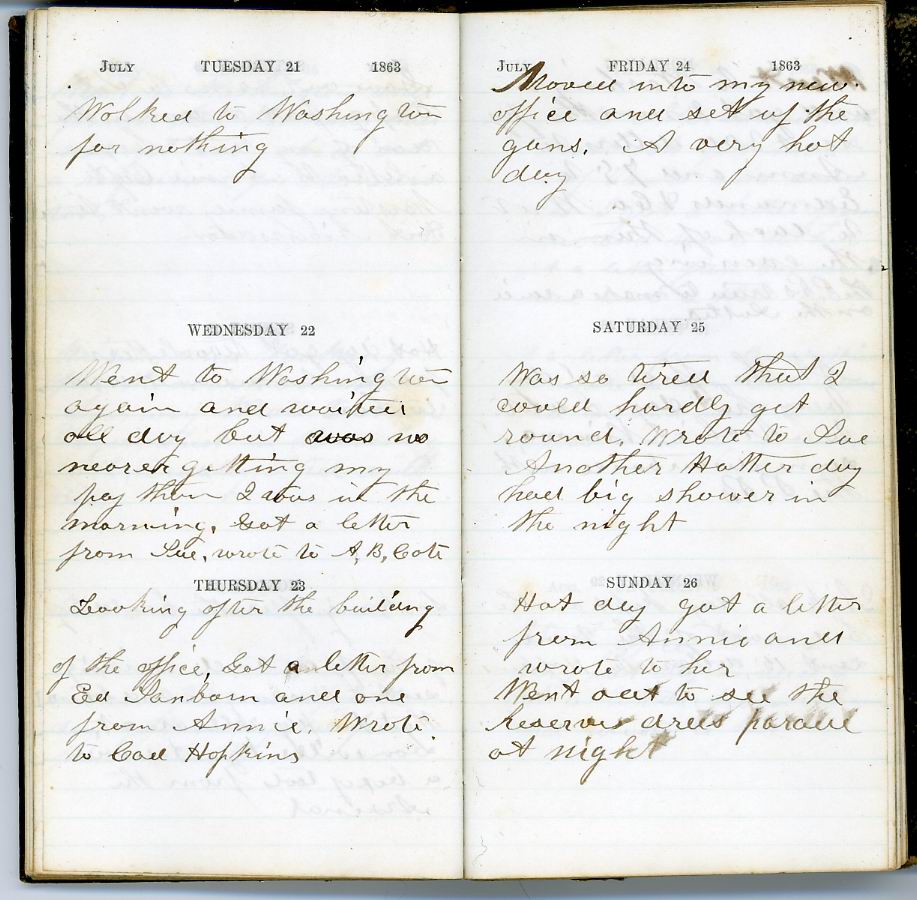 July TUESDAY 21 1863
Walked to Washington
for nothing
WEDNESDAY 22
Went to Washington
again and waited
all day but was no
nearer getting my
pay than I was in the
morning. Got a letter
from Sue, wrote to A, B, Cote
THURSDAY 23
Looking after the building
of the office, Got a letter from
Ed Sanborn and one
from Annie. Wrote
to Hopkins
July FRIDAY 24 1863
Moved into my new
office and set up the
guns. A very hot
day
SATURDAY 25
Was so tired that I
could hardly get
round. Wrote to Sue
Another Hotter day
had big shower in
the night
SUNDAY 26
Hot day got a letter
from Annie and
wrote to her
Went out to see the
Reserves dress parade
at night